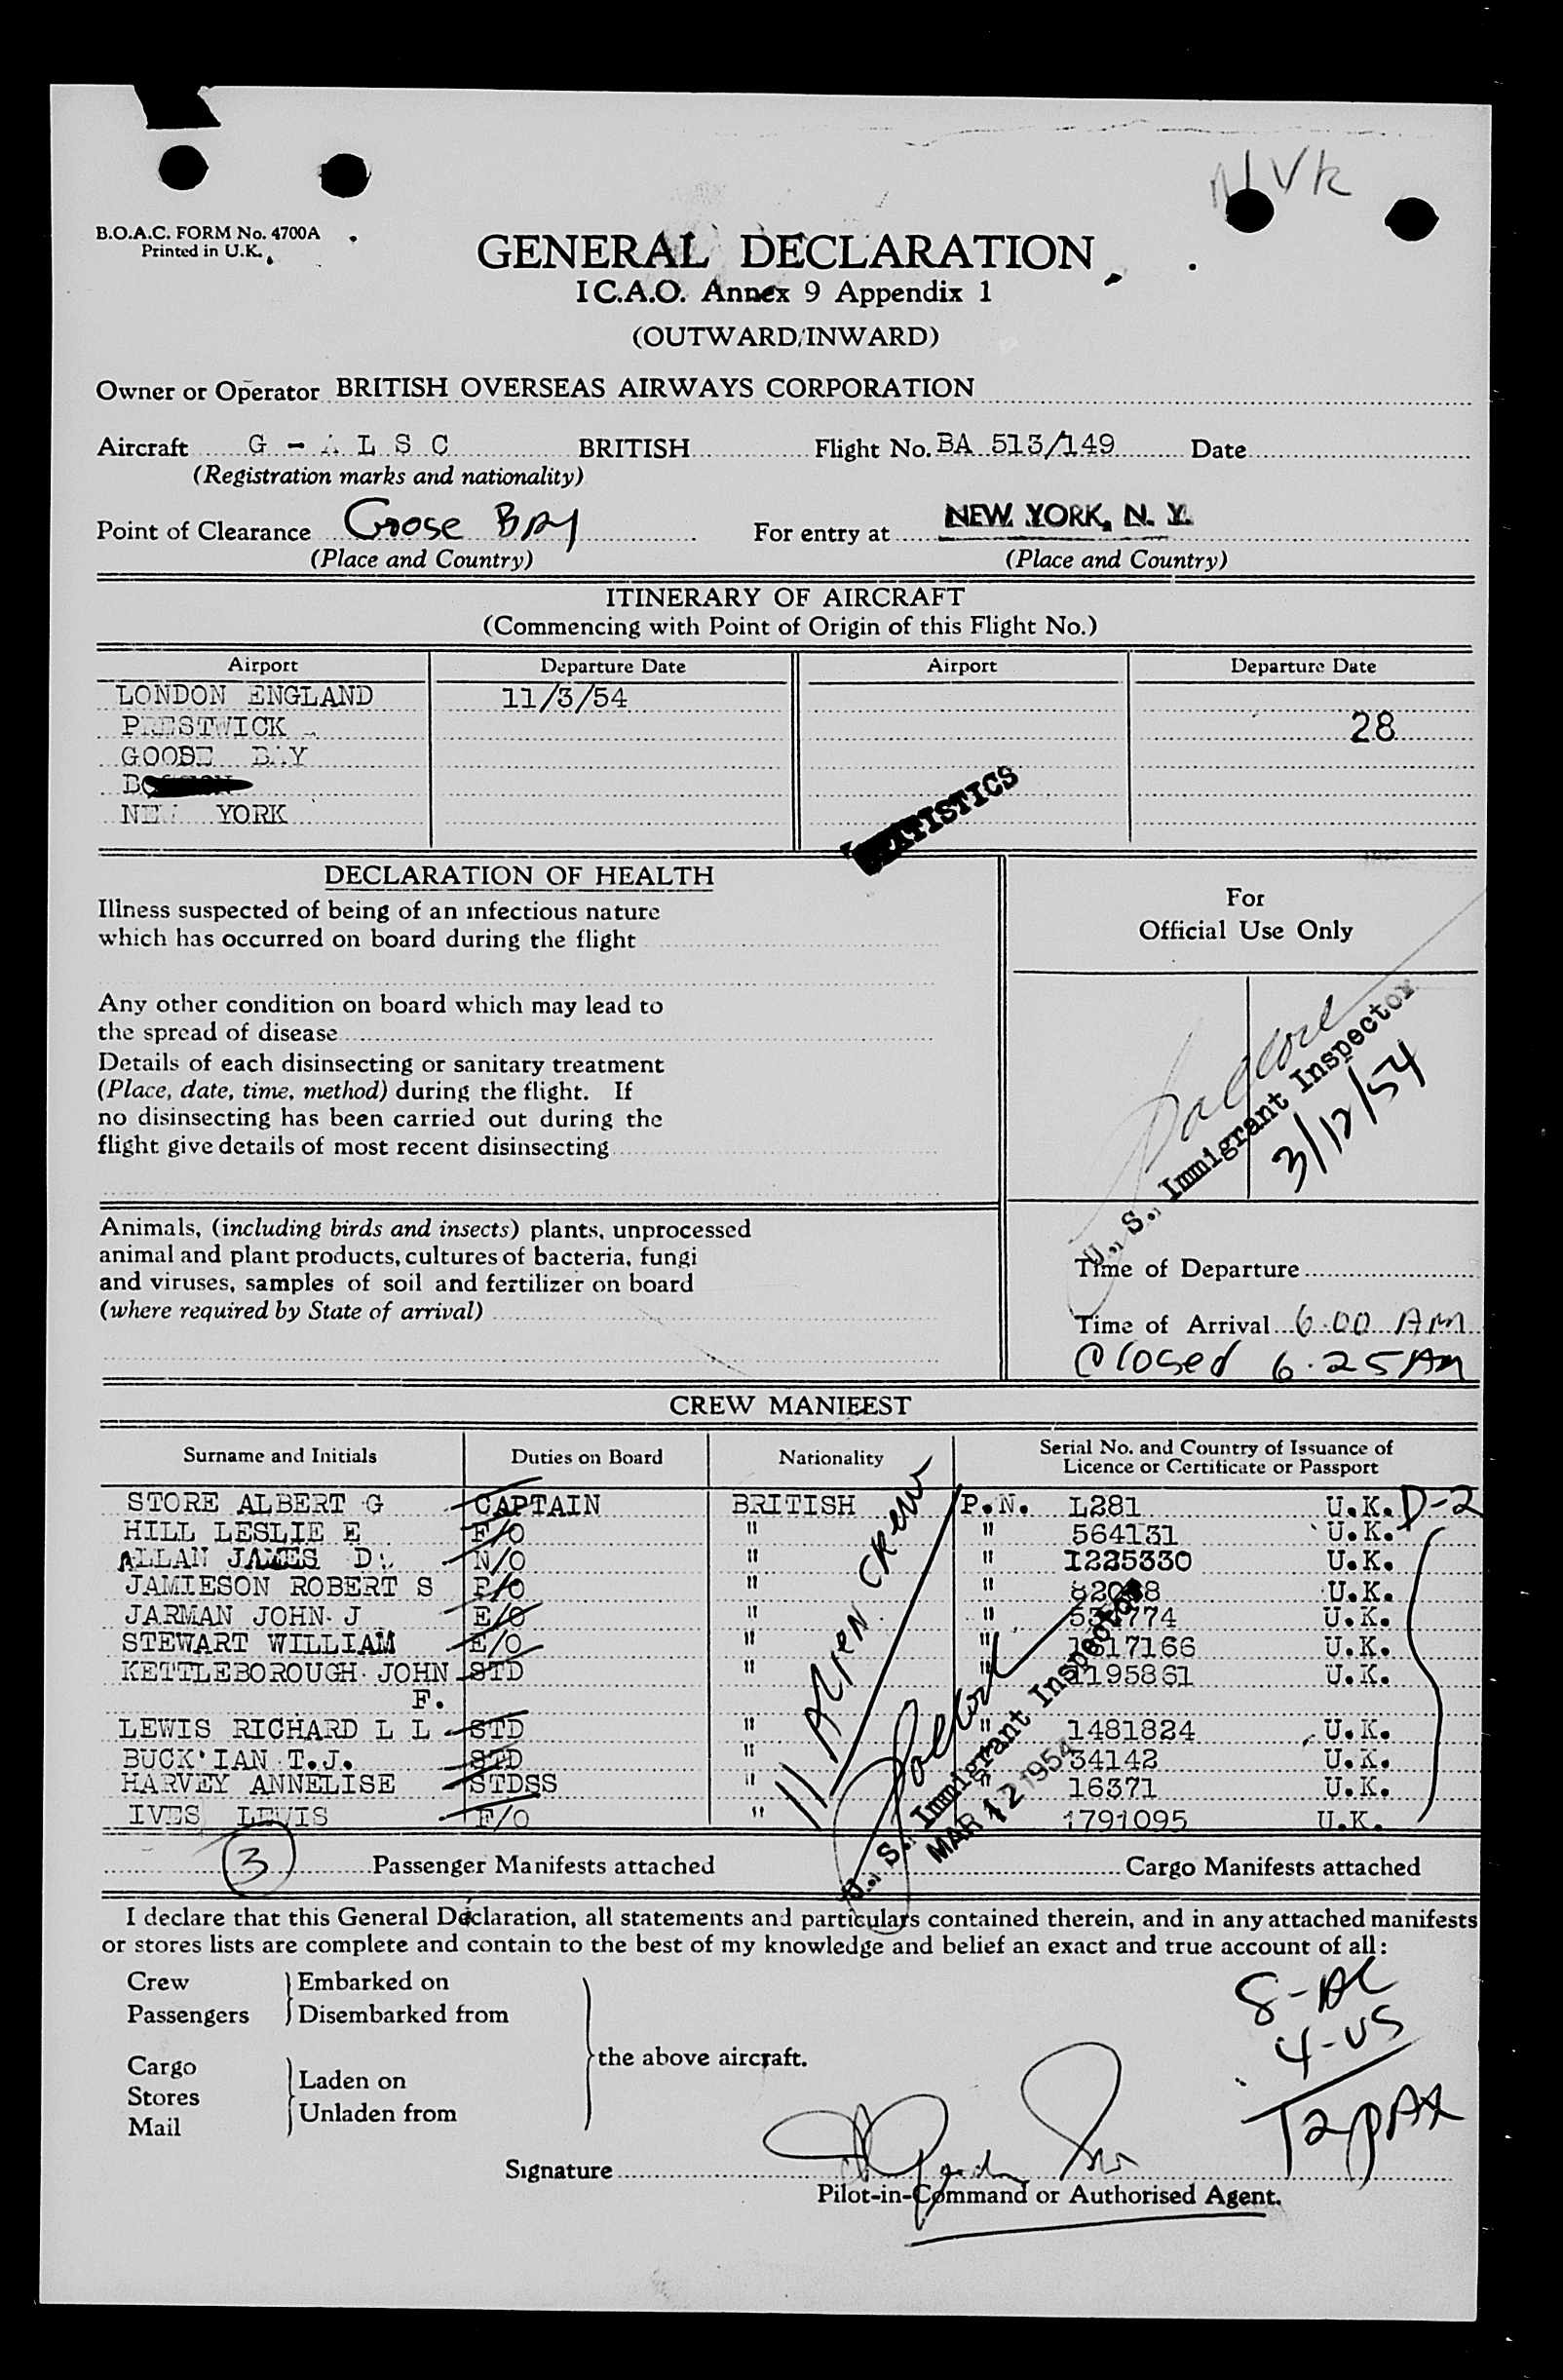 NVK
B.O.A.C. FORM No. 4700A
Printed in U.K.
GENERAL DECLARATION
I C.A.O. Annex 9 Appendix 1
(OUTWARD/INWARD)
Owner or Operator BRITISH OVERSEAS AIRWAYS CORPORATION
Aircraft G - A L S C BRITISH Flight No. BA 513/149 Date
(Registration marks and nationality)
Point of Clearance Goose Bay For entry at NEW YORK, N. Y.
(Place and Country) (Place and Country)
ITINERARY OF AIRCRAFT
(Commencing with Point of Origin of this Flight No.)
Airport Departure Date Airport Departure Date
LONDON ENGLAND 11/3/54
PRESTWICK 28
GOOSE BAY
NEW YORK
STATISTICS
DECLARATION OF HEALTH
Illness suspected of being of an infectious nature
which has occurred on board during the flight
Any other condition on board which may lead to
the spread of disease
Details of each disinsecting or sanitary treatment
(Place, date, time, method) during the flight. If
no disinsecting has been carried out during the
flight give details of most recent disinsecting
For
Official Use Only
U. S. Immigrant Inspector
3/12/54
Animals, (including birds and insects) plants, unprocessed
animal and plant products, cultures of bacteria, fungi
and viruses, samples of soil and fertilizer on board
(where required by State of arrival)
Time of Departure
Time of Arrival 6.00 AM
Closed 6.25 AM
CREW MANIFEST
Surname and Initials Duties on Board Nationality Serial No. and Country of Issuance of
Licence or Certificate or Passport
STORE ALBERT G CAPTAIN BRITISH P.N. L281 U.K. D-2
HILL LESLIE E F/O " " 564131 U.K.
ALLAN JAMES D. N/O " " I225330 U.K.
JAMIESON ROBERT S R/O " " U.K.
JARMAN JOHN J E/O " " U.K.
STEWART WILLIAM E/O " " 1617166 U.K.
KETTLEBOROUGH JOHN STD " " 1195861 U.K.
F.
LEWIS RICHARD L L STD " " 1481824 U.K.
BUCK'IAN T.J. STD " " 34142 U.K.
HARVEY ANNELISE STDSS " " 16371 U.K.
IVES LEWIS F/O " 1791095 U.K.
11 Alien Crew
U. S. Immigrant Inspector
MAR 12 1954
3 Passenger Manifests attached Cargo Manifests attached
I declare that this General Declaration, all statements and particulars contained therein, and in any attached manifests
or stores lists are complete and contain to the best of my knowledge and belief an exact and true account of all:
Crew Embarked on
Passengers Disembarked from
the above aircraft.
Cargo Laden on
Stores
Mail Unladen from
8-AL
4-US
12 PAX
Signature
Pilot-in-Command or Authorised Agent.